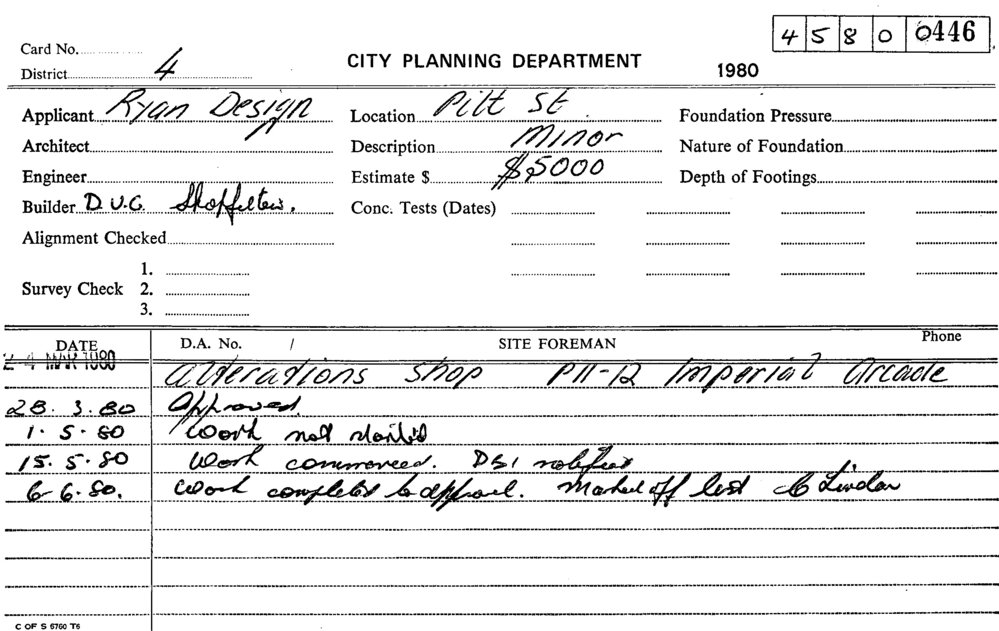 4 5 8 0 0446
Card No.
District 4
CITY PLANNING DEPARTMENT
1980
Applicant Ryan Design
Location Pitt St
Foundation Pressure
Architect
Description Minor
Nature of Foundation
Engineer
Estimate $ $5000
Depth of Footings
Builder D.U.G. Shopfitters.
Conc. Tests (Dates)
Alignment Checked
1.
Survey Check 2.
3.
DATE D.A. No. / SITE FOREMAN Phone
24 MAR 1980
Alterations Shop P11-12 Imperial Arcade
28.3.80 Approved.
1.5.80 Work not started
15.5.80 Work commenced. DBI notified
6.6.80. Work completed to approval. Marked off list
C OF S 6760 T6